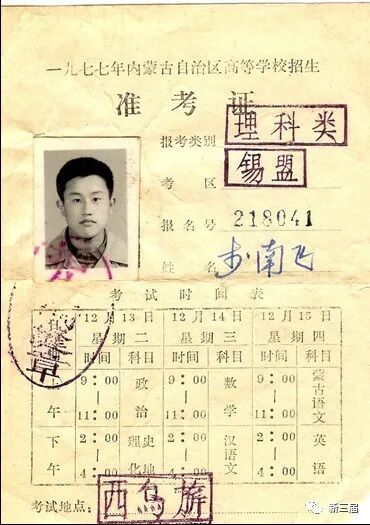 一九七七年内蒙古自治区高等学校招生
准考证
报考类别 理科类
考区 锡盟
报名号 218041
姓名 步南飞
考试时间表
12月13日 12月14日 12月15日
星期二 星期三 星期四
时间 科目 时间 科目 时间 科目
上午 9:00 11:00 政治 9:00 11:00 数学 9:00 11:00 蒙古语文
下午 2:00 4:00 理化 史地 2:00 4:00 汉语文 2:00 4:00 英语
考试地点: 西乌旗
新三届